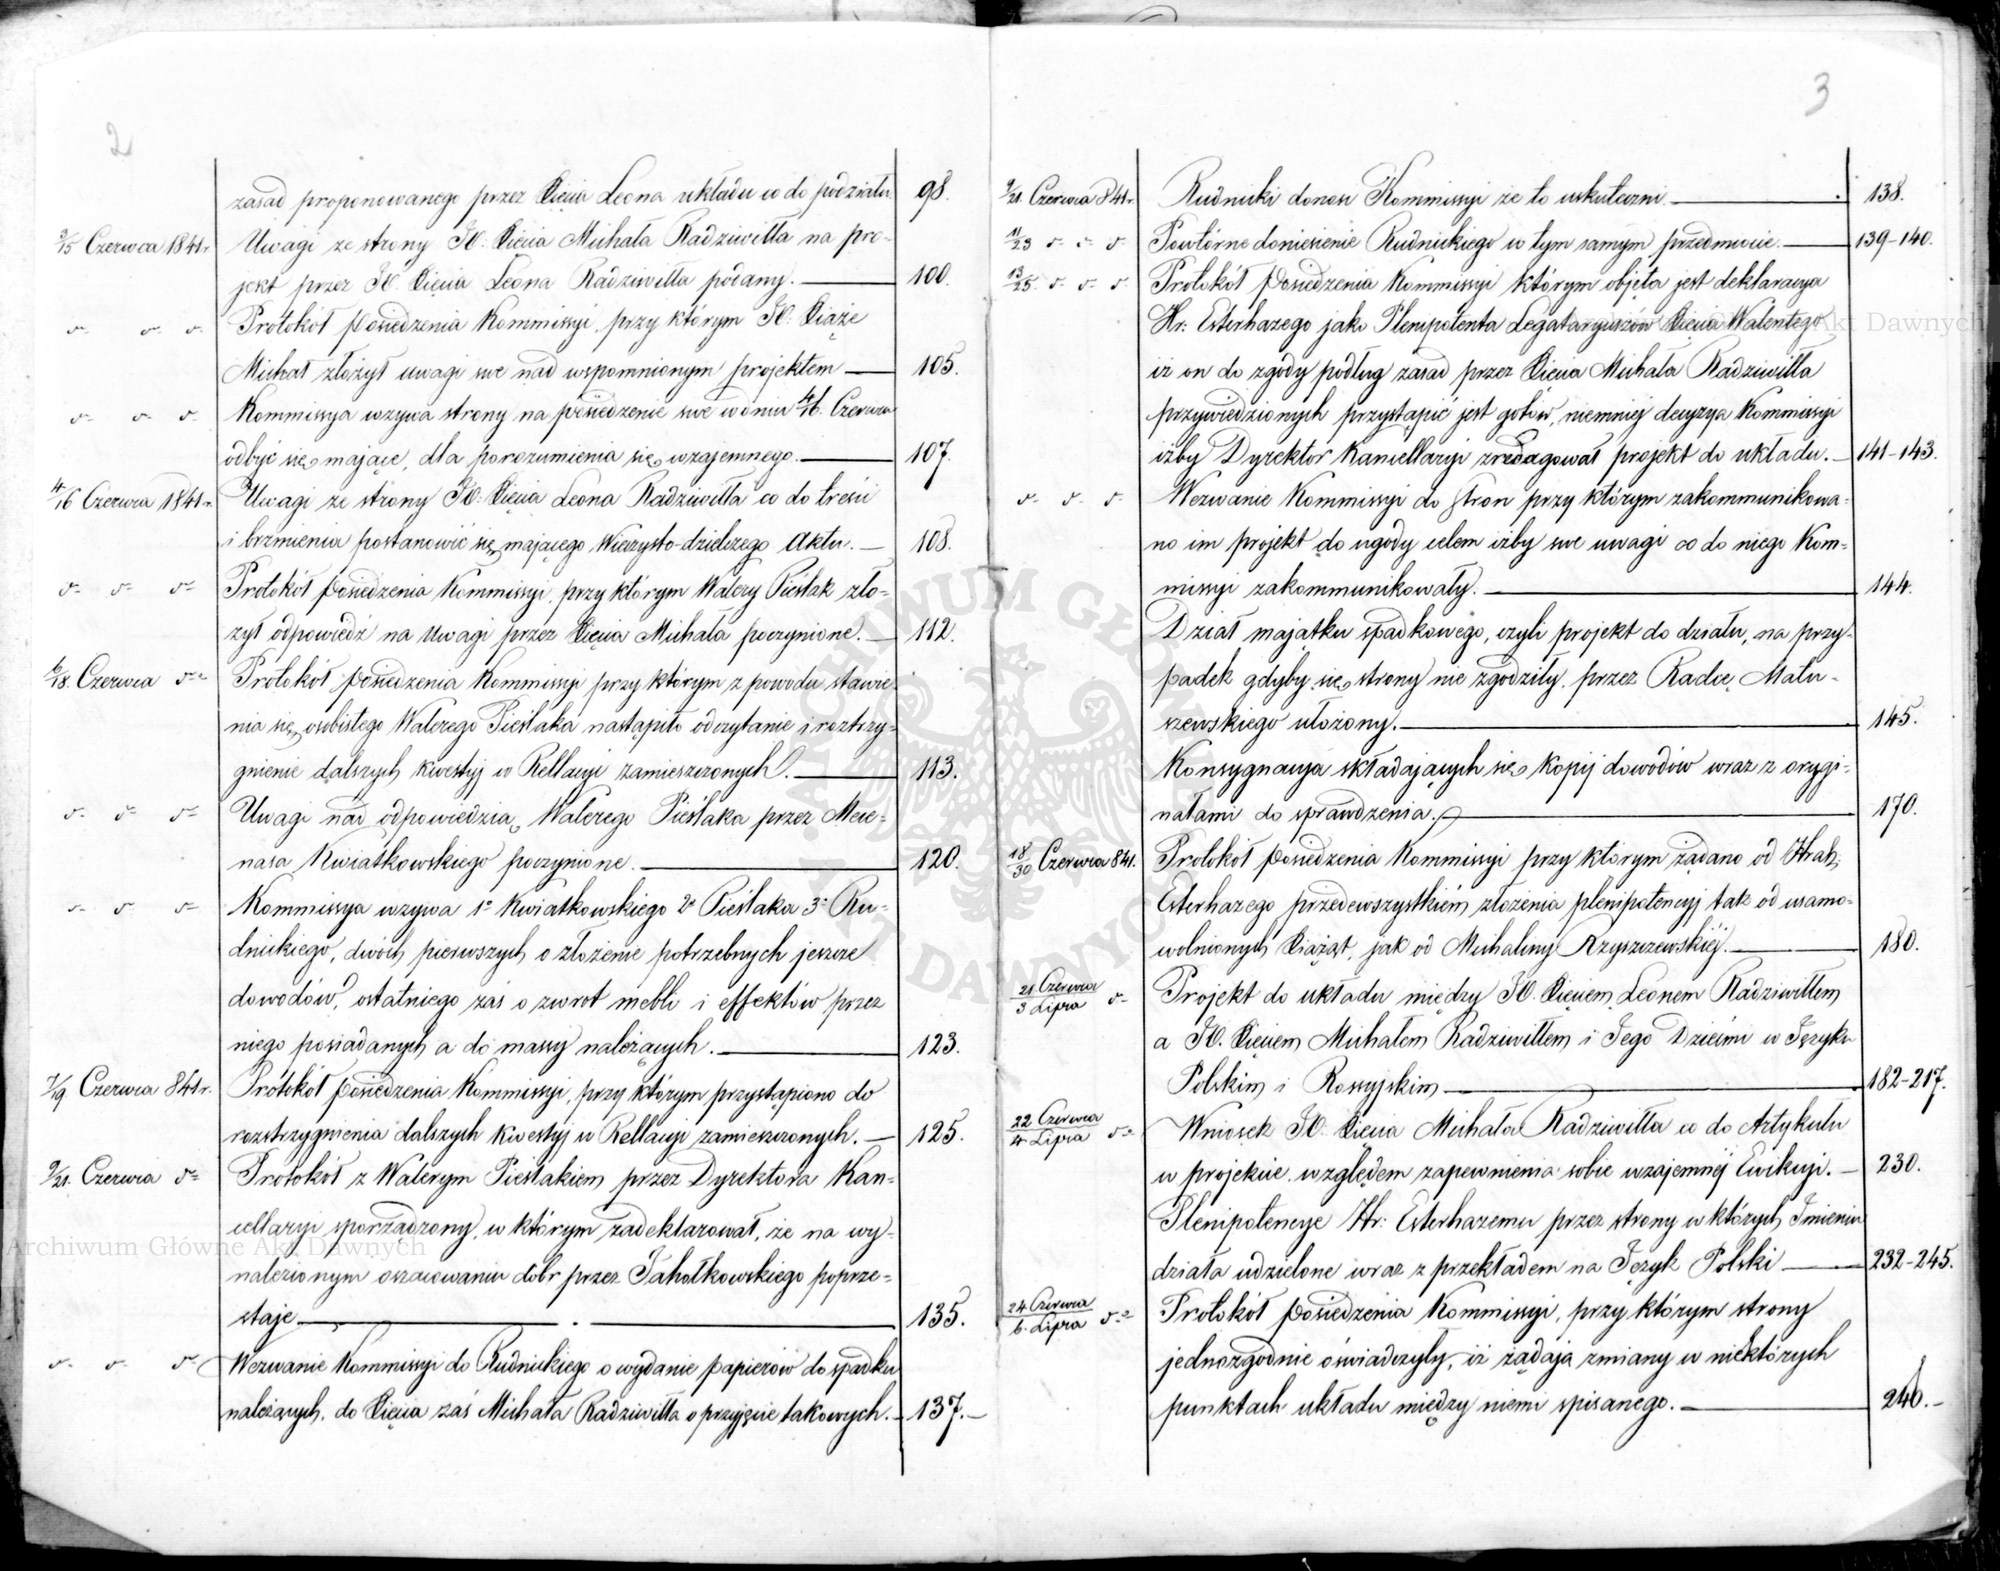 2
zasad proponowanego przez Xięcia Leona układu co do podziału 98.
3/15 Czerwca 1841 r. Uwagi ze strony JO. Xięcia Michała Radziwiłła na pro-
jekt przez JO. Xięcia Leona Radziwiłła podany. 100.
d- d- d- Protokół posiedzenia Kommissyi, przy którym JO. Xiąże
Michał złożył uwagi swe nad wspomnionym projektem 105.
d- d- d- Kommissya wzywa strony na posiedzenie swe w dniu 4/16. Czerwca
odbyć się mające, dla porozumienia się wzajemnego. 107.
4/16 Czerwca 1841 r. Uwagi ze strony JO. Xięcia Leona Radziwiłła co do treści
i brzmienia postanowić się mającego Wieczysto-dzielczego Aktu. 108.
d- d- d- Protokół posiedzenia Kommissyi, przy którym Walery Pieślak zło-
żył odpowiedź na Uwagi przez Xięcia Michała poczynione. 112.
6/18. Czerwca d- Protokół posiedzenia Kommissyi przy którym z powodu stawie-
nia się osobistego Walerego Pieślaka nastąpiło odczytanie i roztrzy-
gnienie dalszych kwestyj w Rellacyi zamieszczonych. 113.
d- d- d- Uwagi nad odpowiedzią Walerego Pieślaka przez Mece-
nasa Kwiatkowskiego poczynione. 120.
d- d- d- Kommissya wzywa 1º Kwiatkowskiego 2º Pieślaka 3º Ru-
dnickiego, dwóch pierwszych o złożenie potrzebnych jeszcze
dowodów, ostatniego zaś o zwrot mebli i effektów przez
niego posiadanych a do massy należących. 123.
7/19 Czerwca 841 r. Protokół posiedzenia Kommissyi, przy którym przystąpiono do
rozstrzygnienia dalszych kwestyj w Rellacyi zamieszczonych. 125.
9/21. Czerwca d- Protokół z Walerym Pieślakiem przez Dyrektora Kan-
cellaryi sporządzony, w którym zadeklarował, że na wy-
nalezionym oszacowaniu dóbr przez Jahołkowskiego poprze-
staje 135.
d- d- d- Wezwanie Kommissyi do Rudnickiego o wydanie papierów do spadku
należących, do Xięcia zaś Michała Radziwiłła o przyjęcie takowych. 137.
3
9/21. Czerwca 841 r. Rudnicki donosi Kommissyi że to uskuteczni 138.
11/23 d- d- d- Powtórne doniesienie Rudnickiego w tym samym przedmiocie. 139-140.
13/25. d- d- d- Protokół Posiedzenia Kommissyi którym objęta jest deklaracya
Hr: Esterhazego jako Plenipotenta Legataryuszów Xięcia Walentego
iż on do zgody podług zasad przez Xięcia Michała Radziwiłła
przywiedzionych przystąpić jest gotów, niemniej decyzya Kommissyi
iżby Dyrektor Kancellaryi zredagował projekt do układu. 141-143.
d- d- d- Wezwanie Kommissyi do Stron przy którym zakommunikowa-
no im projekt do ugody celem iżby swe uwagi co do niego Kom-
missyi zakommunikowały. 144.
Dział majątku spadkowego, czyli projekt do działu, na przy-
padek gdyby się strony nie zgodziły, przez Radcę Matu-
szewskiego ułożony. 145.
Konsygnacya składających się kopij dowodów wraz z orygi-
nałami do sprawdzenia. 170.
18/30 Czerwca 841. Protokół posiedzenia Kommissyi przy którym żądano od Hrab:
Esterhazego przedewszystkiém złożenia plenipotencyj tak od usamo-
wolnionych Xiążąt, jak od Michaliny Rzyszczewskiéj. 180.
21 Czerwca/3 Lipca d- Projekt do układu między JO. Xięciem Leonem Radziwiłłem
a JO. Xięciem Michałem Radziwiłłem i Jego Dziećmi w Języku
Polskim i Rossyjskim 182-217.
22 Czerwca/4 Lipca d- Wniosek JO. Xięcia Michała Radziwiłła co do Artykułu
w projekcie względem zapewnienia sobie wzajemnéj Ewikcyi. 230.
Plenipotencye Hr: Esterhazemu przez strony w których Imieniu
działa udzielone wraz z przekładem na Język Polski 232-245.
24 Czerwca/6. Lipca d- Protokół posiedzenia Kommissyi, przy którym strony
jednozgodnie oświadczyły, iż żądają zmiany w niektórych
punktach układu między niemi spisanego. 246.
Archiwum Główne Akt Dawnych
ARCHIWUM GŁÓWNE AKT DAWNYCH
Archiwum Główne Akt Dawnych